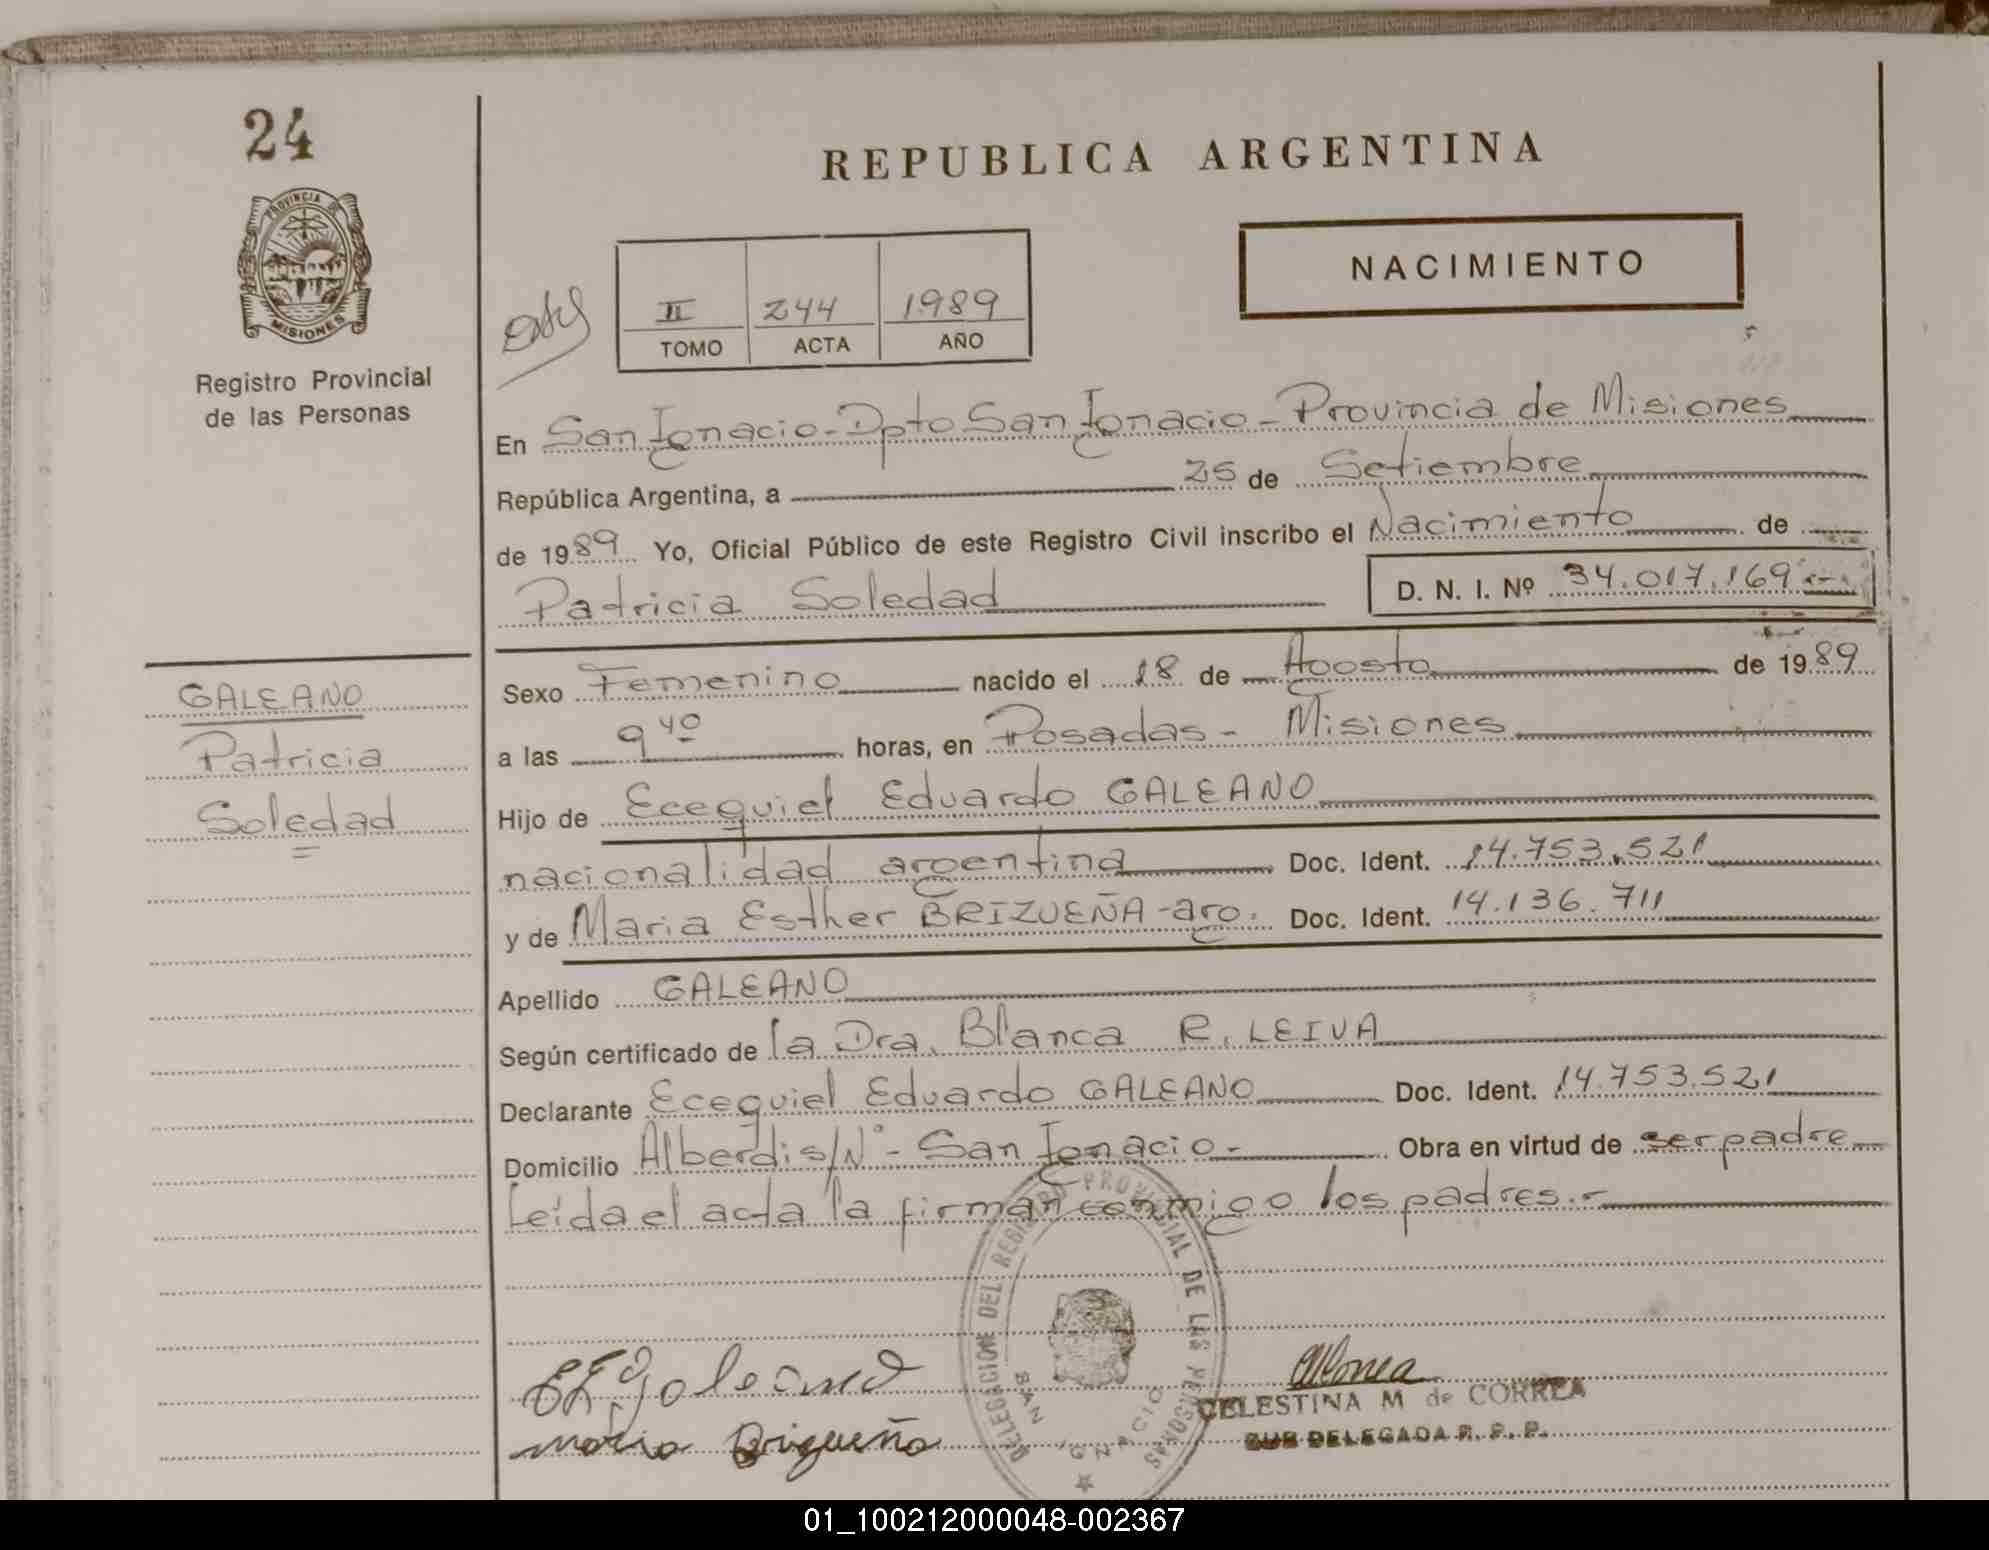 24
PROVINCIA DE
MISIONES
Registro Provincial
de las Personas
GALEANO
Patricia
Soledad
REPUBLICA ARGENTINA
NACIMIENTO
II 244 1989
TOMO ACTA AÑO
En San Ignacio - Dpto San Ignacio - Provincia de Misiones
República Argentina, a 25 de Setiembre
de 1989 Yo, Oficial Público de este Registro Civil inscribo el Nacimiento de
Patricia Soledad D. N. I. Nº 34.017.169.-
Sexo Femenino nacido el 18 de Agosto de 1989
a las 9 40 horas, en Posadas - Misiones
Hijo de Ecequiel Eduardo GALEANO
nacionalidad argentina Doc. Ident. 14.753.521
y de Maria Esther BRIZUEÑA - arg. Doc. Ident. 14.136.711
Apellido GALEANO
Según certificado de la Dra. Blanca R. LEIVA
Declarante Ecequiel Eduardo GALEANO Doc. Ident. 14.753.521
Domicilio Alberdi s/Nº - San Ignacio - Obra en virtud de ser padre
Leída el acta la firman conmigo los padres.-
DELEGACION DEL REGISTRO PROVINCIAL DE LAS PERSONAS
SAN IGNACIO
E E Galeano
Maria Brigueña
CELESTINA M de CORREA
SUB DELEGADA R. P. P.
01_100212000048-002367